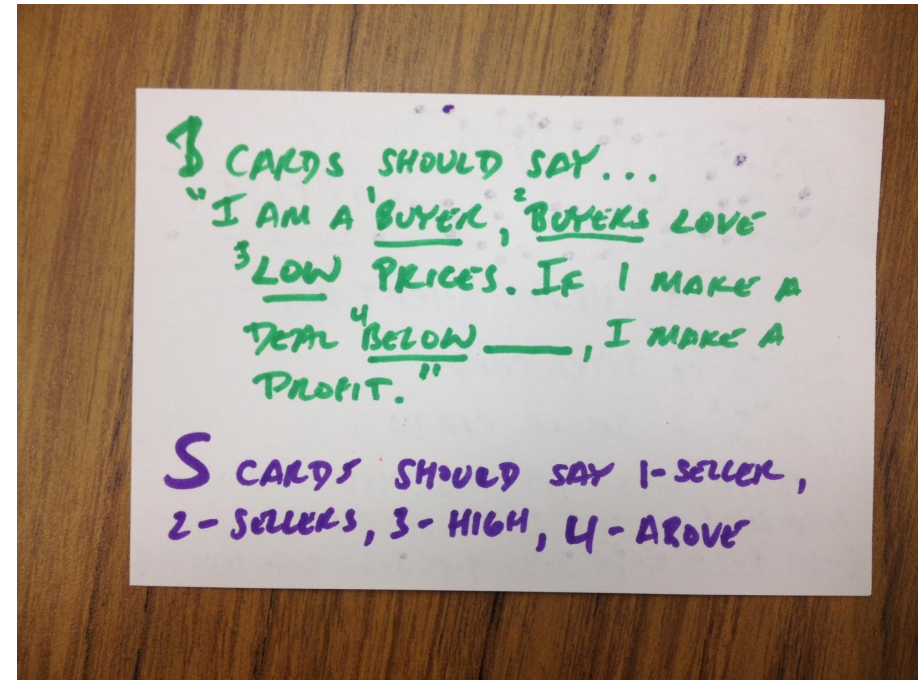 B CARDS SHOULD SAY...
"I AM A ¹BUYER, ²BUYERS LOVE
³LOW PRICES. IF I MAKE A
DEAL ⁴BELOW ____, I MAKE A
PROFIT."
S CARDS SHOULD SAY 1-SELLER,
2-SELLERS, 3-HIGH, 4-ABOVE